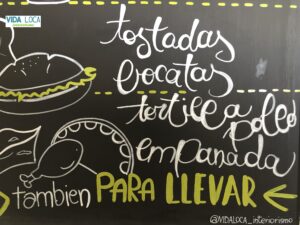 VIDA LOCA
tostadas
bocatas
tortilla pollo
empanada
tambien PARA LLEVAR
@VIDALOCA_interiorismo